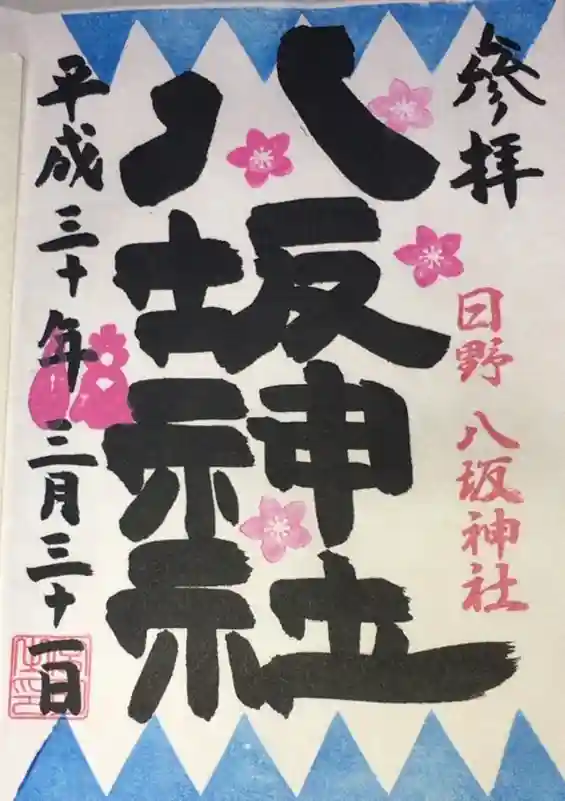 參拝
日野 八坂神社
八坂神社
平成三十年三月三十一日